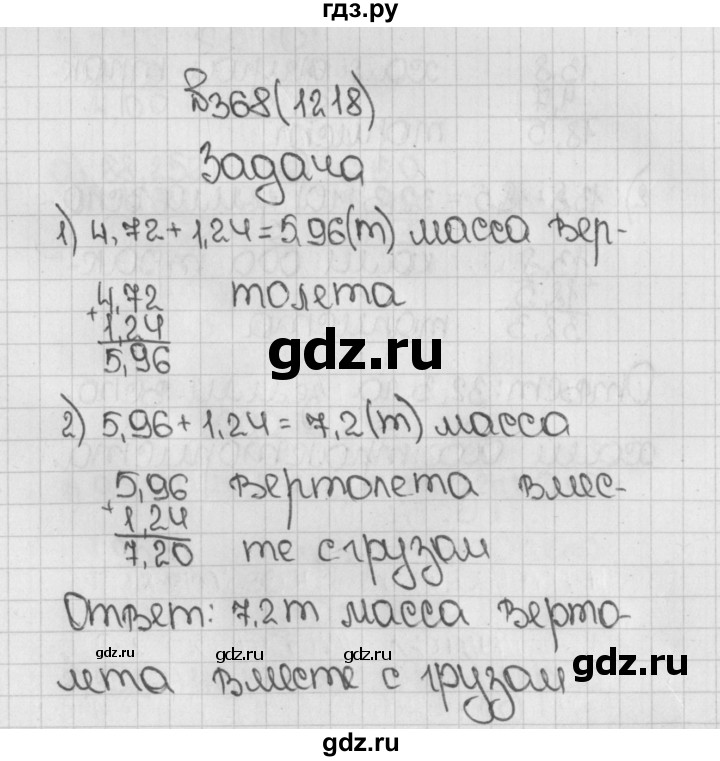 гдз.ру
№368(1218)
Задача
1) 4,72+1,24=5,96(т) масса вер-
4,72 толета
+
1,24
5,96
gdz.ru
2) 5,96+1,24=7,2(т) масса
5,96 вертолета вмес-
+
1,24
7,20 те с грузом
Ответ: 7,2т масса верто-
gdz.ru gdz.ru gdz.ru gdz.ru
лета вместе с грузом
gdz.ru